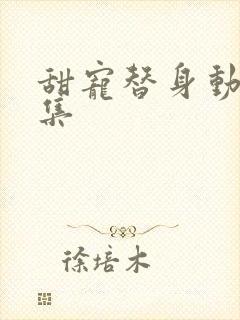 甜寵替身動
集
徐培木